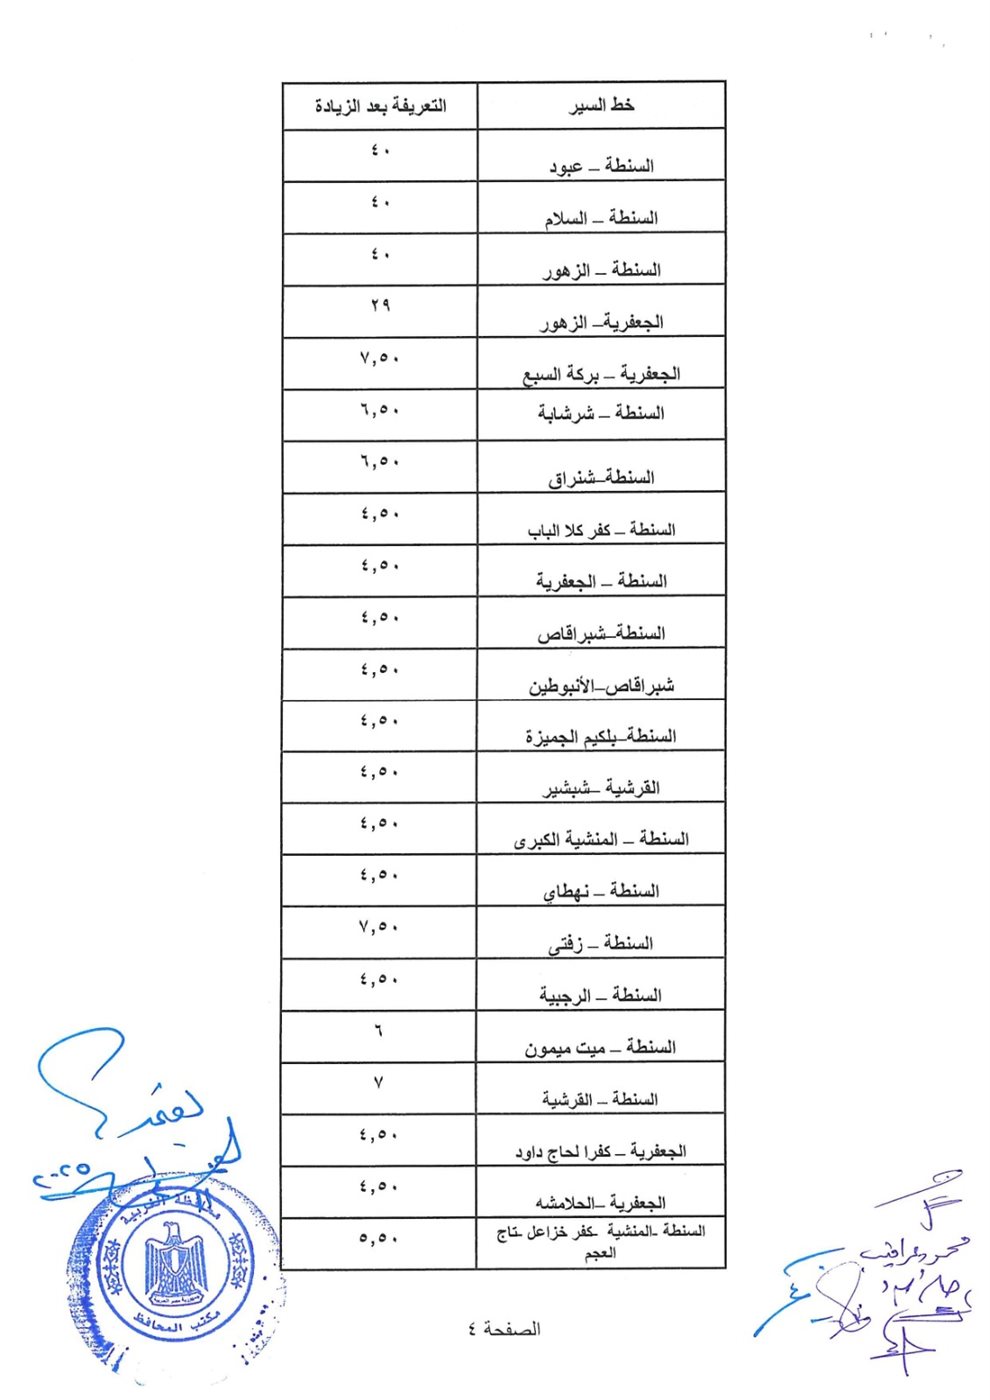 خط السير التعريفة بعد الزيادة
السنطة – عبود ٤٠
السنطة – السلام ٤٠
السنطة – الزهور ٤٠
الجعفرية– الزهور ٢٩
الجعفرية – بركة السبع ٧,٥٠
السنطة – شرشابة ٦,٥٠
السنطة–شنراق ٦,٥٠
السنطة – كفر كلا الباب ٤,٥٠
السنطة – الجعفرية ٤,٥٠
السنطة–شبراقاص ٤,٥٠
شبراقاص–الأنبوطين ٤,٥٠
السنطة–بلكيم الجميزة ٤,٥٠
القرشية –شبشير ٤,٥٠
السنطة – المنشية الكبرى ٤,٥٠
السنطة – نهطاي ٤,٥٠
السنطة – زفتى ٧,٥٠
السنطة – الرجبية ٤,٥٠
السنطة – ميت ميمون ٦
السنطة – القرشية ٧
الجعفرية – كفرا لحاج داود ٤,٥٠
الجعفرية –الحلامشه ٤,٥٠
السنطة -المنشية -كفر خزاعل -تاج ٥,٥٠
العجم
يعتمد
محافظة الغربية
جمهورية مصر العربية
مكتب المحافظ
الصفحة ٤